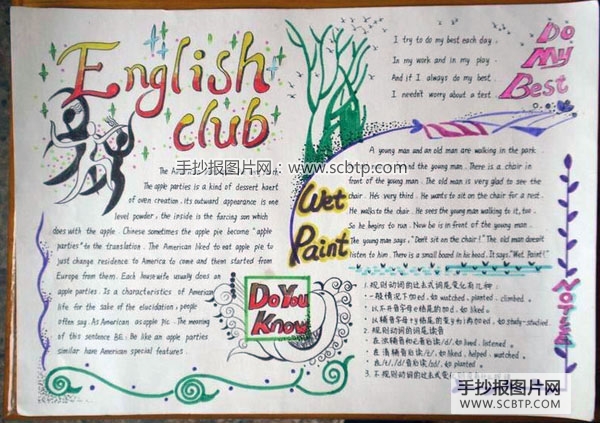 English
club
The A
The apple parties is a kind of dessert haert
of oven creation, its outward appearance is one
level powder, the inside is the farcing son which
does with the apple. Chinese sometimes the apple pie become "apple
parties" to the translation. The American liked to eat apple pie to
just change residence to America to come and them started from
Europe from them). Each housewife usually does an
apple parties. Is a characteristics of American
life for the sake of the elucidation, people
often say. As American as apple pie. The meaning
of this sentence BE: Be like an apple parties
similar have American special features.
Do You
Know
I try to do my best each day.
In my work and in my play.
And if I always do my best.
I needn't worry about a test
Do
My
Best
Wet
Paint
A young man and an old man are walking in the park.
nd the young man. There is a chair in
front of the young man. The old man is very glad to see the
chair. He's very tired. He wants to sit on the chair for a rest.
He walks to the chair. He sees the young man walking to it, too.
So he begins to run. Now he is in front of the young man.
The young man says, "Don't sit on the chair!" The old man doesn't
listen to him. There is a small board in his head. It says "Wet Paint!"
1. 规则动词的过去式词尾变化有几种:
一般情况下加ed, 如 watched, planted, climbed.
以不发音字母e结尾的加d, 如 liked.
以辅音字母+y结尾的变y为i再加ed, 如study-studied
2. 规则动词的词尾读音
在浊辅音和元音后读/d/, 如 lived, listened.
在清辅音后读/t/, 如 liked, helped, watched.
在/t/,/d/音后读/id/, 如 planted.
3. 不规则动词的过去式变
手抄报图片网:www.scbtp.com
手抄报图片网
WWW.SCBTP.COM